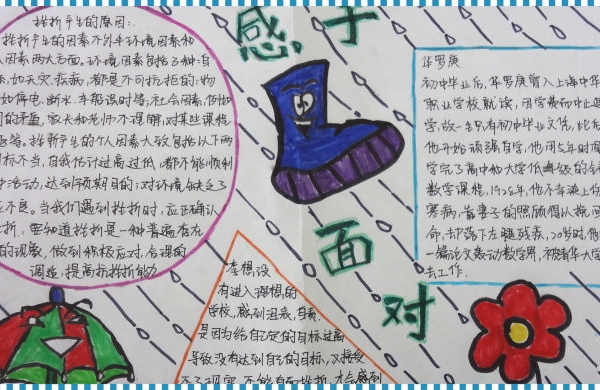 感于
面
对
挫折产生的原因:
挫折产生的因素不外乎环境因素和
人因素两大方面。环境因素包括了种:自
,如天灾、疾病,都是不可抗拒的:物
如停电、断水、车船误时等;社会因素,
的矛盾,家长和老师不理解,对某些课程
等。挫折产生的个人因素大致包括以下两
目标不当,自我估计过高过低,都不能顺利
活动,达到预期目的;对环境缺乏了
不良。当我们遇到挫折时,应正确认
折,要知道挫折是一种普遍存在
的现象,做到积极应对,合理的
调适,提高抗挫折能力
华罗庚
初中毕业后,华罗庚曾入上海中华
职业学校就读,因学费而中途
学,故一生只有初中毕业文凭,此后
他开始顽强自学,他用5年时间
学完了高中和大学低年级的全部
数学课程,1928年,他不幸染上伤
寒病,靠妻子的照顾得以挽回
命,却落下左腿残疾,20岁时,他
一篇论文轰动数学界,被清华大学
去工作.
李想没
有进入理想的
学校,感到沮丧,自卑,
是因为给自己定的目标过高
导致没有达到自己的目标,又接受
不了现实,不能有面对挫折,才会感到